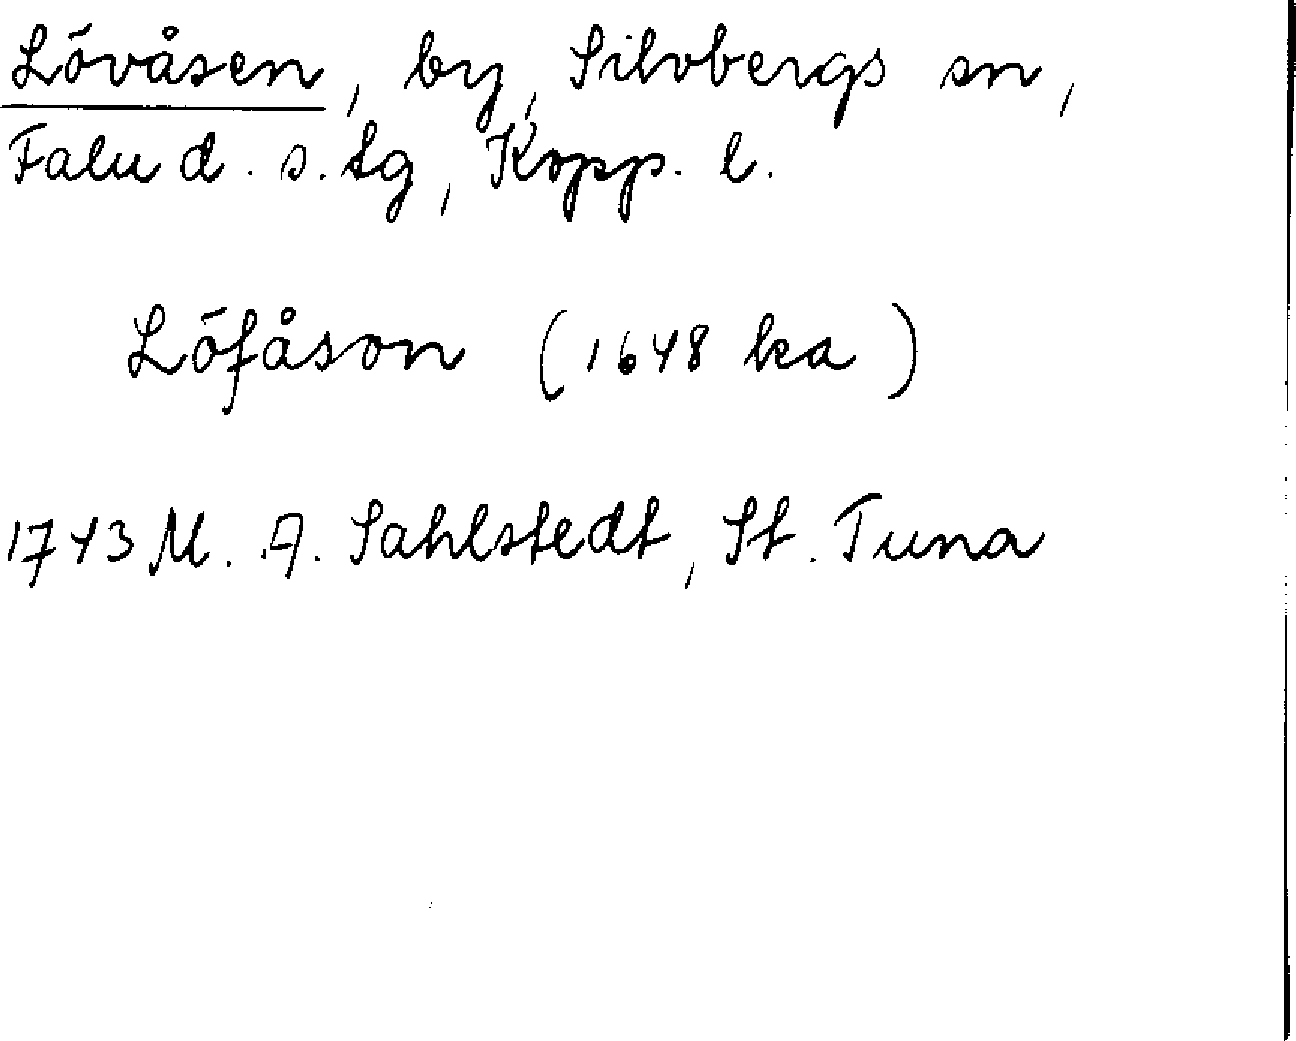 Lövåsen, by, Silvbergs sn,
Falu d. s. tg, Kopp. l.
Löfåson (1648 ka)
1743 M. A. Sahlstedt, St. Tuna